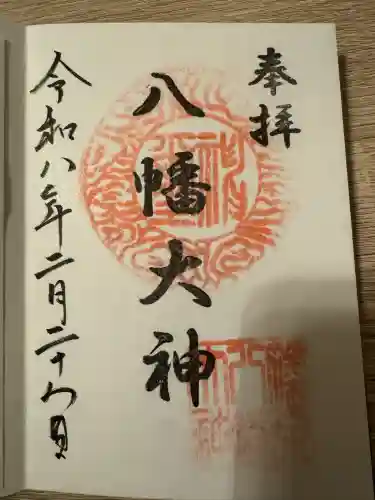 奉拝
八幡大神
令和八年二月二十